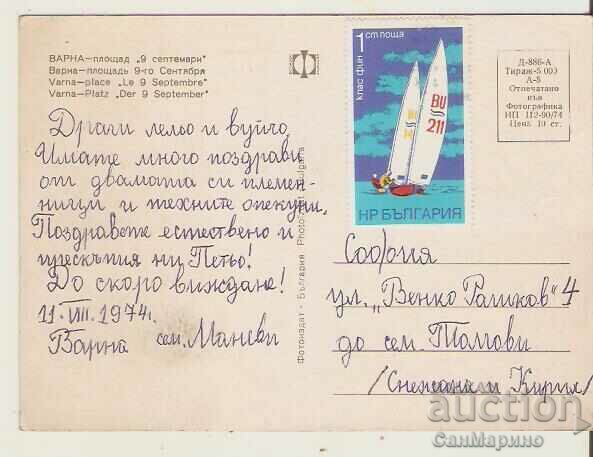 ВАРНА-площад „9 септември"
Варна-площадь 9-го Сентября
Varna-place „Le 9 Septembre"
Varna-Platz „Der 9 September"
Драги лельо и вуйчо,
Имате много поздрави
от двамата си племен-
ници и техните опекуни.
Поздравете естествено и
прескъпия ни Петьо!
До скоро виждане!
11. VIII. 1974г.
Варна сем. Мански
Фотоиздат - България
1 ст поща
клас фин
BU
211
НР БЪЛГАРИЯ
Д-886-А
Тираж-5 000
А-5
Отпечатано
във
Фотографика
ИП 112-90/74
Цена 10 ст.
София
ул. „Венко Рашков" 4
до сем. Толгови
/Снежана и Кирил/
auction
СанМарино